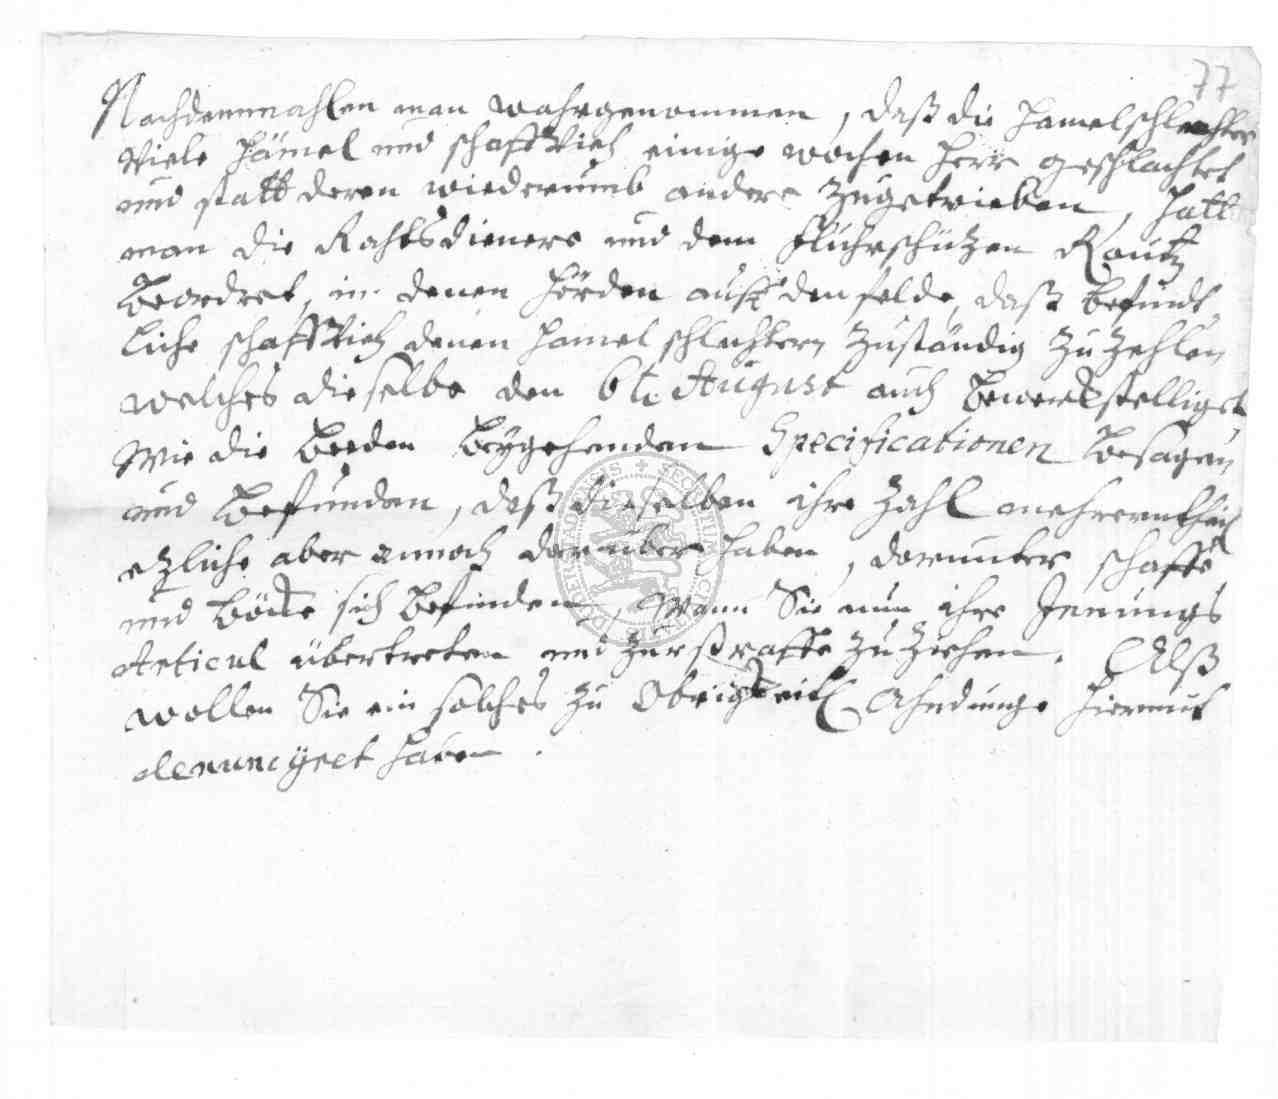 77
Nachdemmahlen man wahrgenommen, daß die hamelschlachter
Viele hämel und schaff Vieh einige wochen herr geschlachtet
und statt deren wiederumb andere zugetrieben, hatt
man die Rahtsdienere und dem fluhrschützen Rautz
beordret, in denen hörden auff den felde, daß befindt
liche schaff Vieh denen hamel schlachtern zuständig zu zehlen
welches dieselbe den 6t. August auch bewerkstelliget,
wie die beeden beygehenden Specificationen besagen
und befunden, daß dieselben ihre zahl mehrerntheils
etzliche aber annoch darüber haben, darunter schaffe
und böcke sich befinden, Wann Sie nun ihre Innungs
Articul übertreten und zur straffe zu ziehen. Alß
wollen Sie ein solches zu Obrigkeitl. Ahndunge hiermit
denuncyret haben.